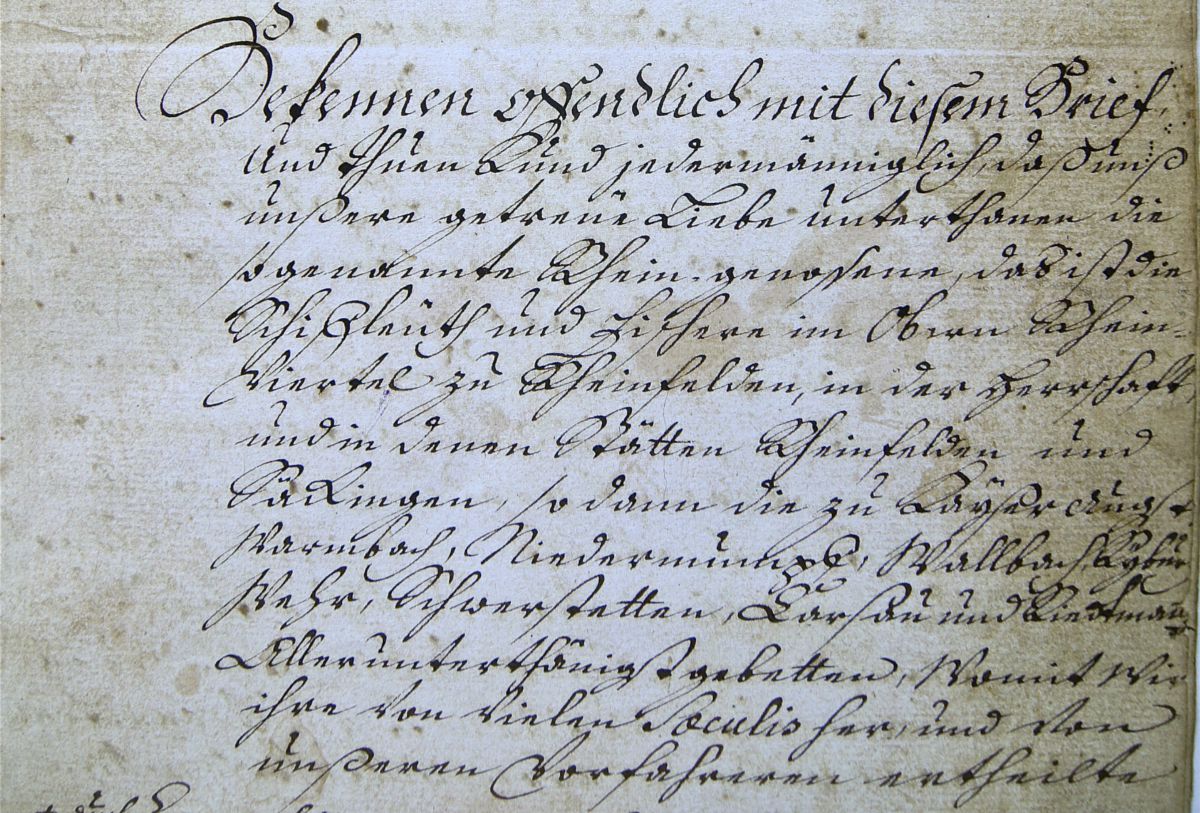 Bekennen offendlich mit diesem Brief,
Und thuen Kund jedermänniglich, daß unß
unßere getreüe Liebe unterthanen die
sogenannte Rhein-genossene, das ist die
Schiffleüth und Fischere im Obern Rhein-
Viertel zu Rheinfelden, in der Herrschaft,
und in denen Stätten Rheinfelden und
Säckingen, so dann die zu Kayser Augst
Warmbach, Niedermumpf, Wallbach,
Wehr, Schwerstetten, Carsau und Riedtmatt
Allerunterthänigst gebetten, Womit Wir
ihre von vielen Sæculis her, und von
unßeren Vorfahreren ertheilte